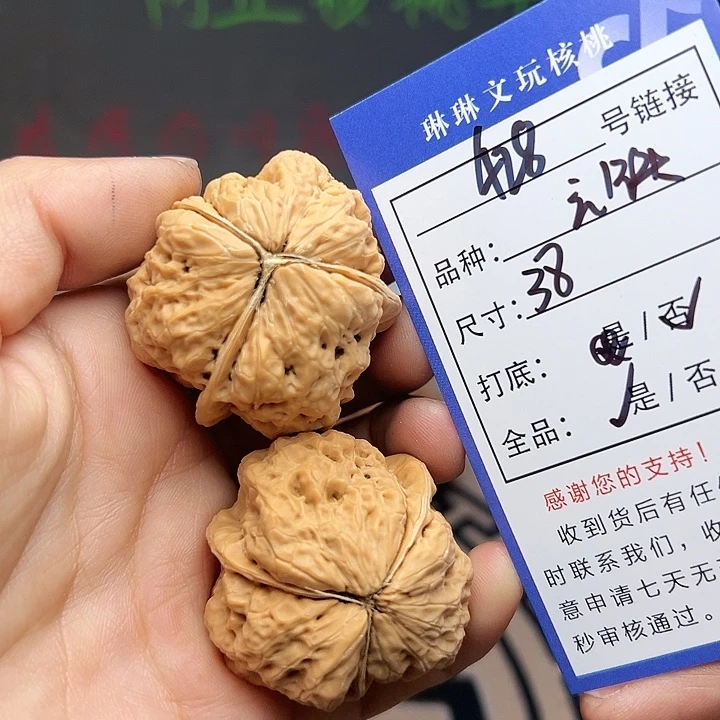 琳琳文玩核桃
428 号链接
品种：
尺寸：38
打底：是 / 否
全品：是 / 否
感谢您的支持！
收到货后有任
时联系我们，收
意申请七天无
秒审核通过。